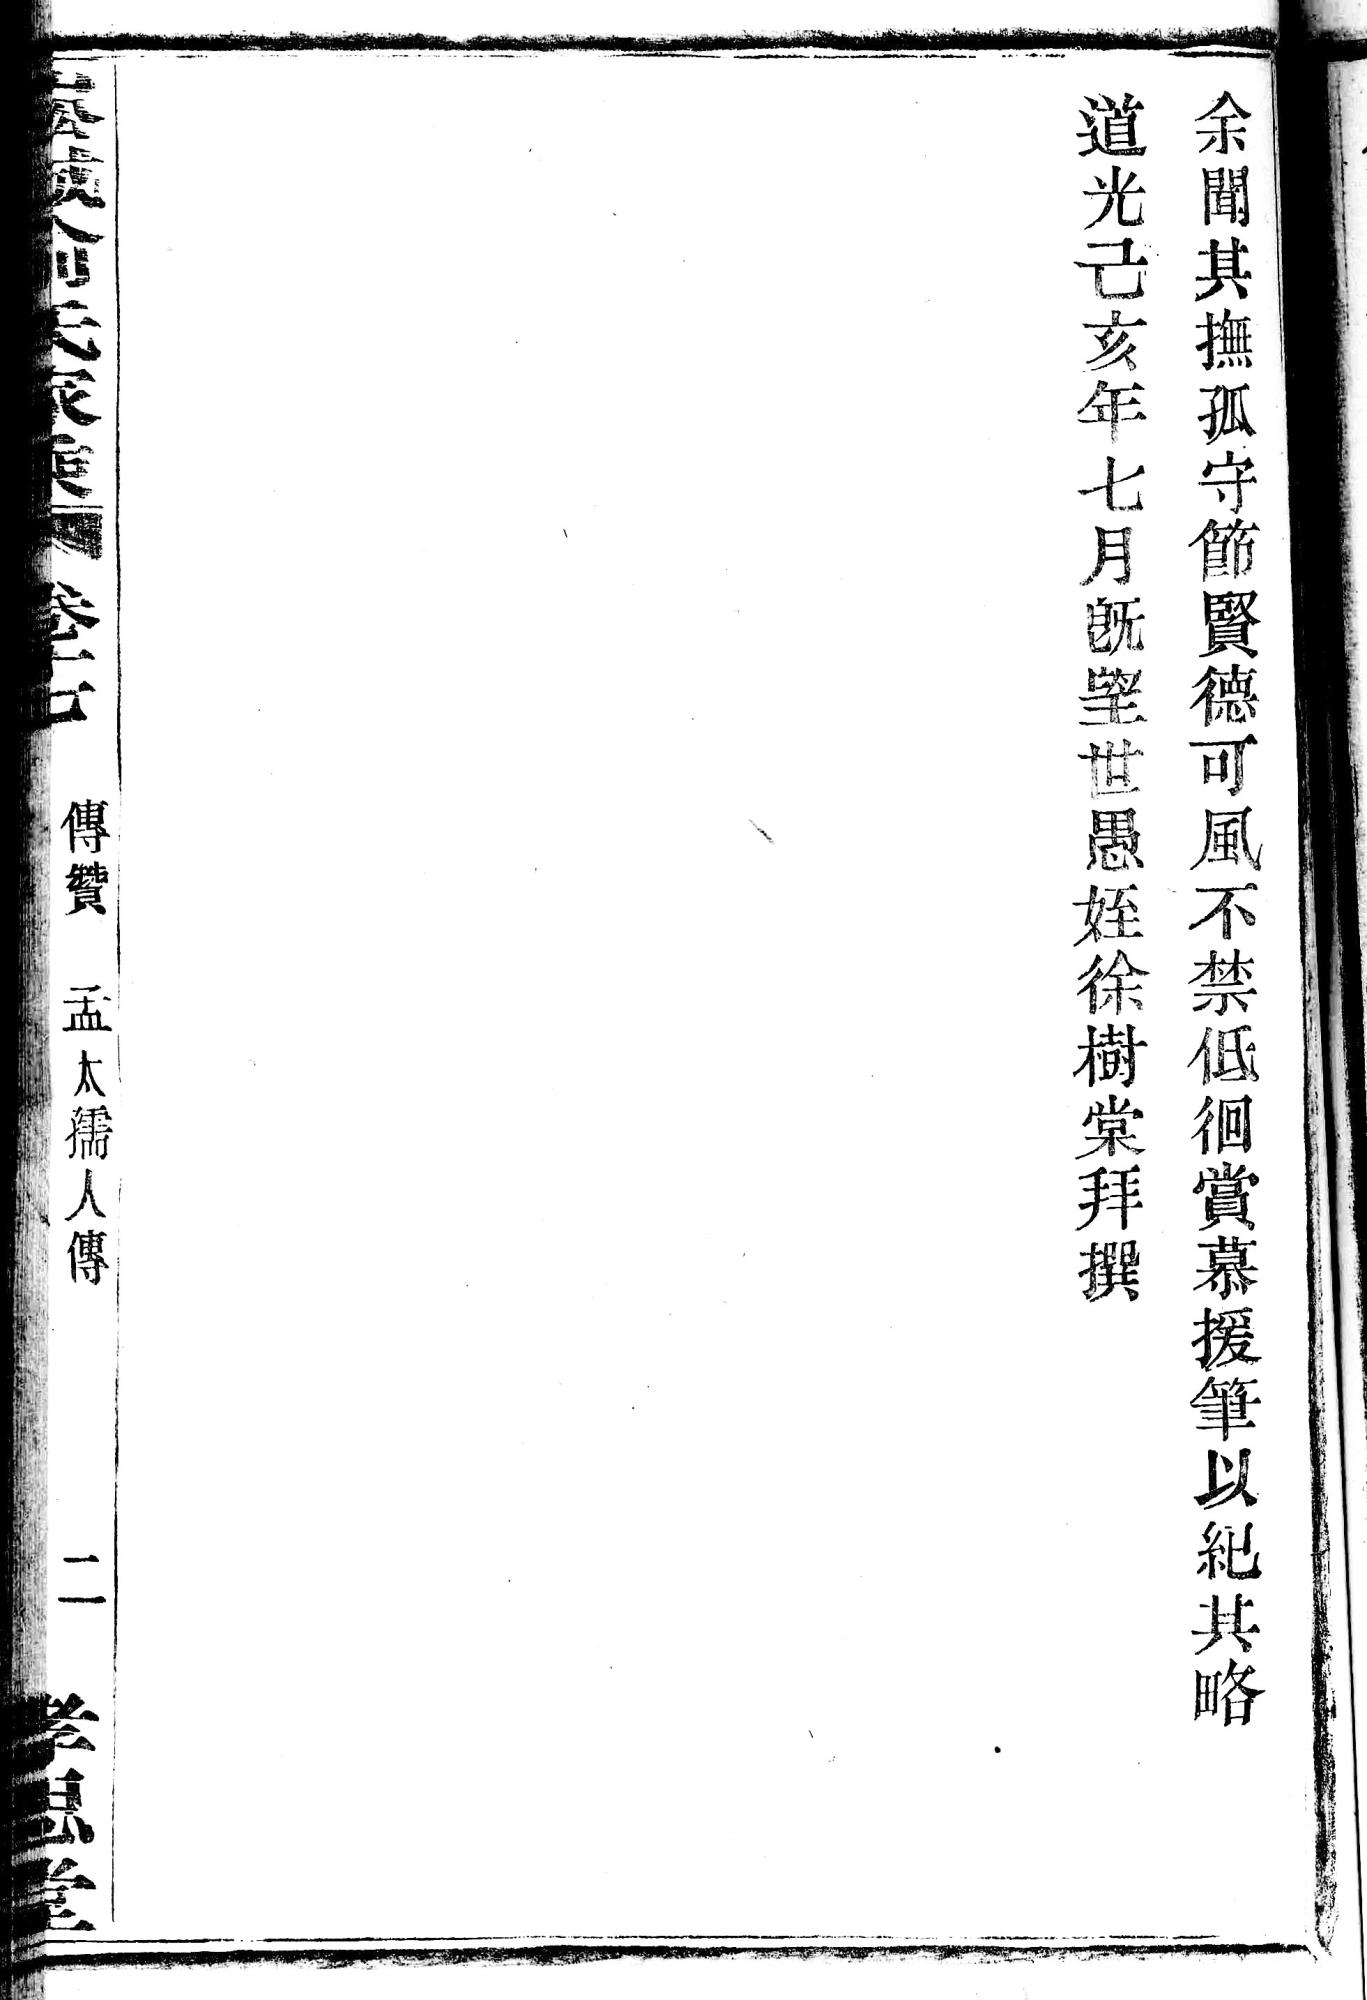 余聞其撫孤守節賢德可風不禁低徊賞慕援筆以紀其略
道光己亥年七月旣望世愚姪徐樹棠拜撰
氏家乘 卷十七 傳贊 孟太孺人傳 二 孝思堂